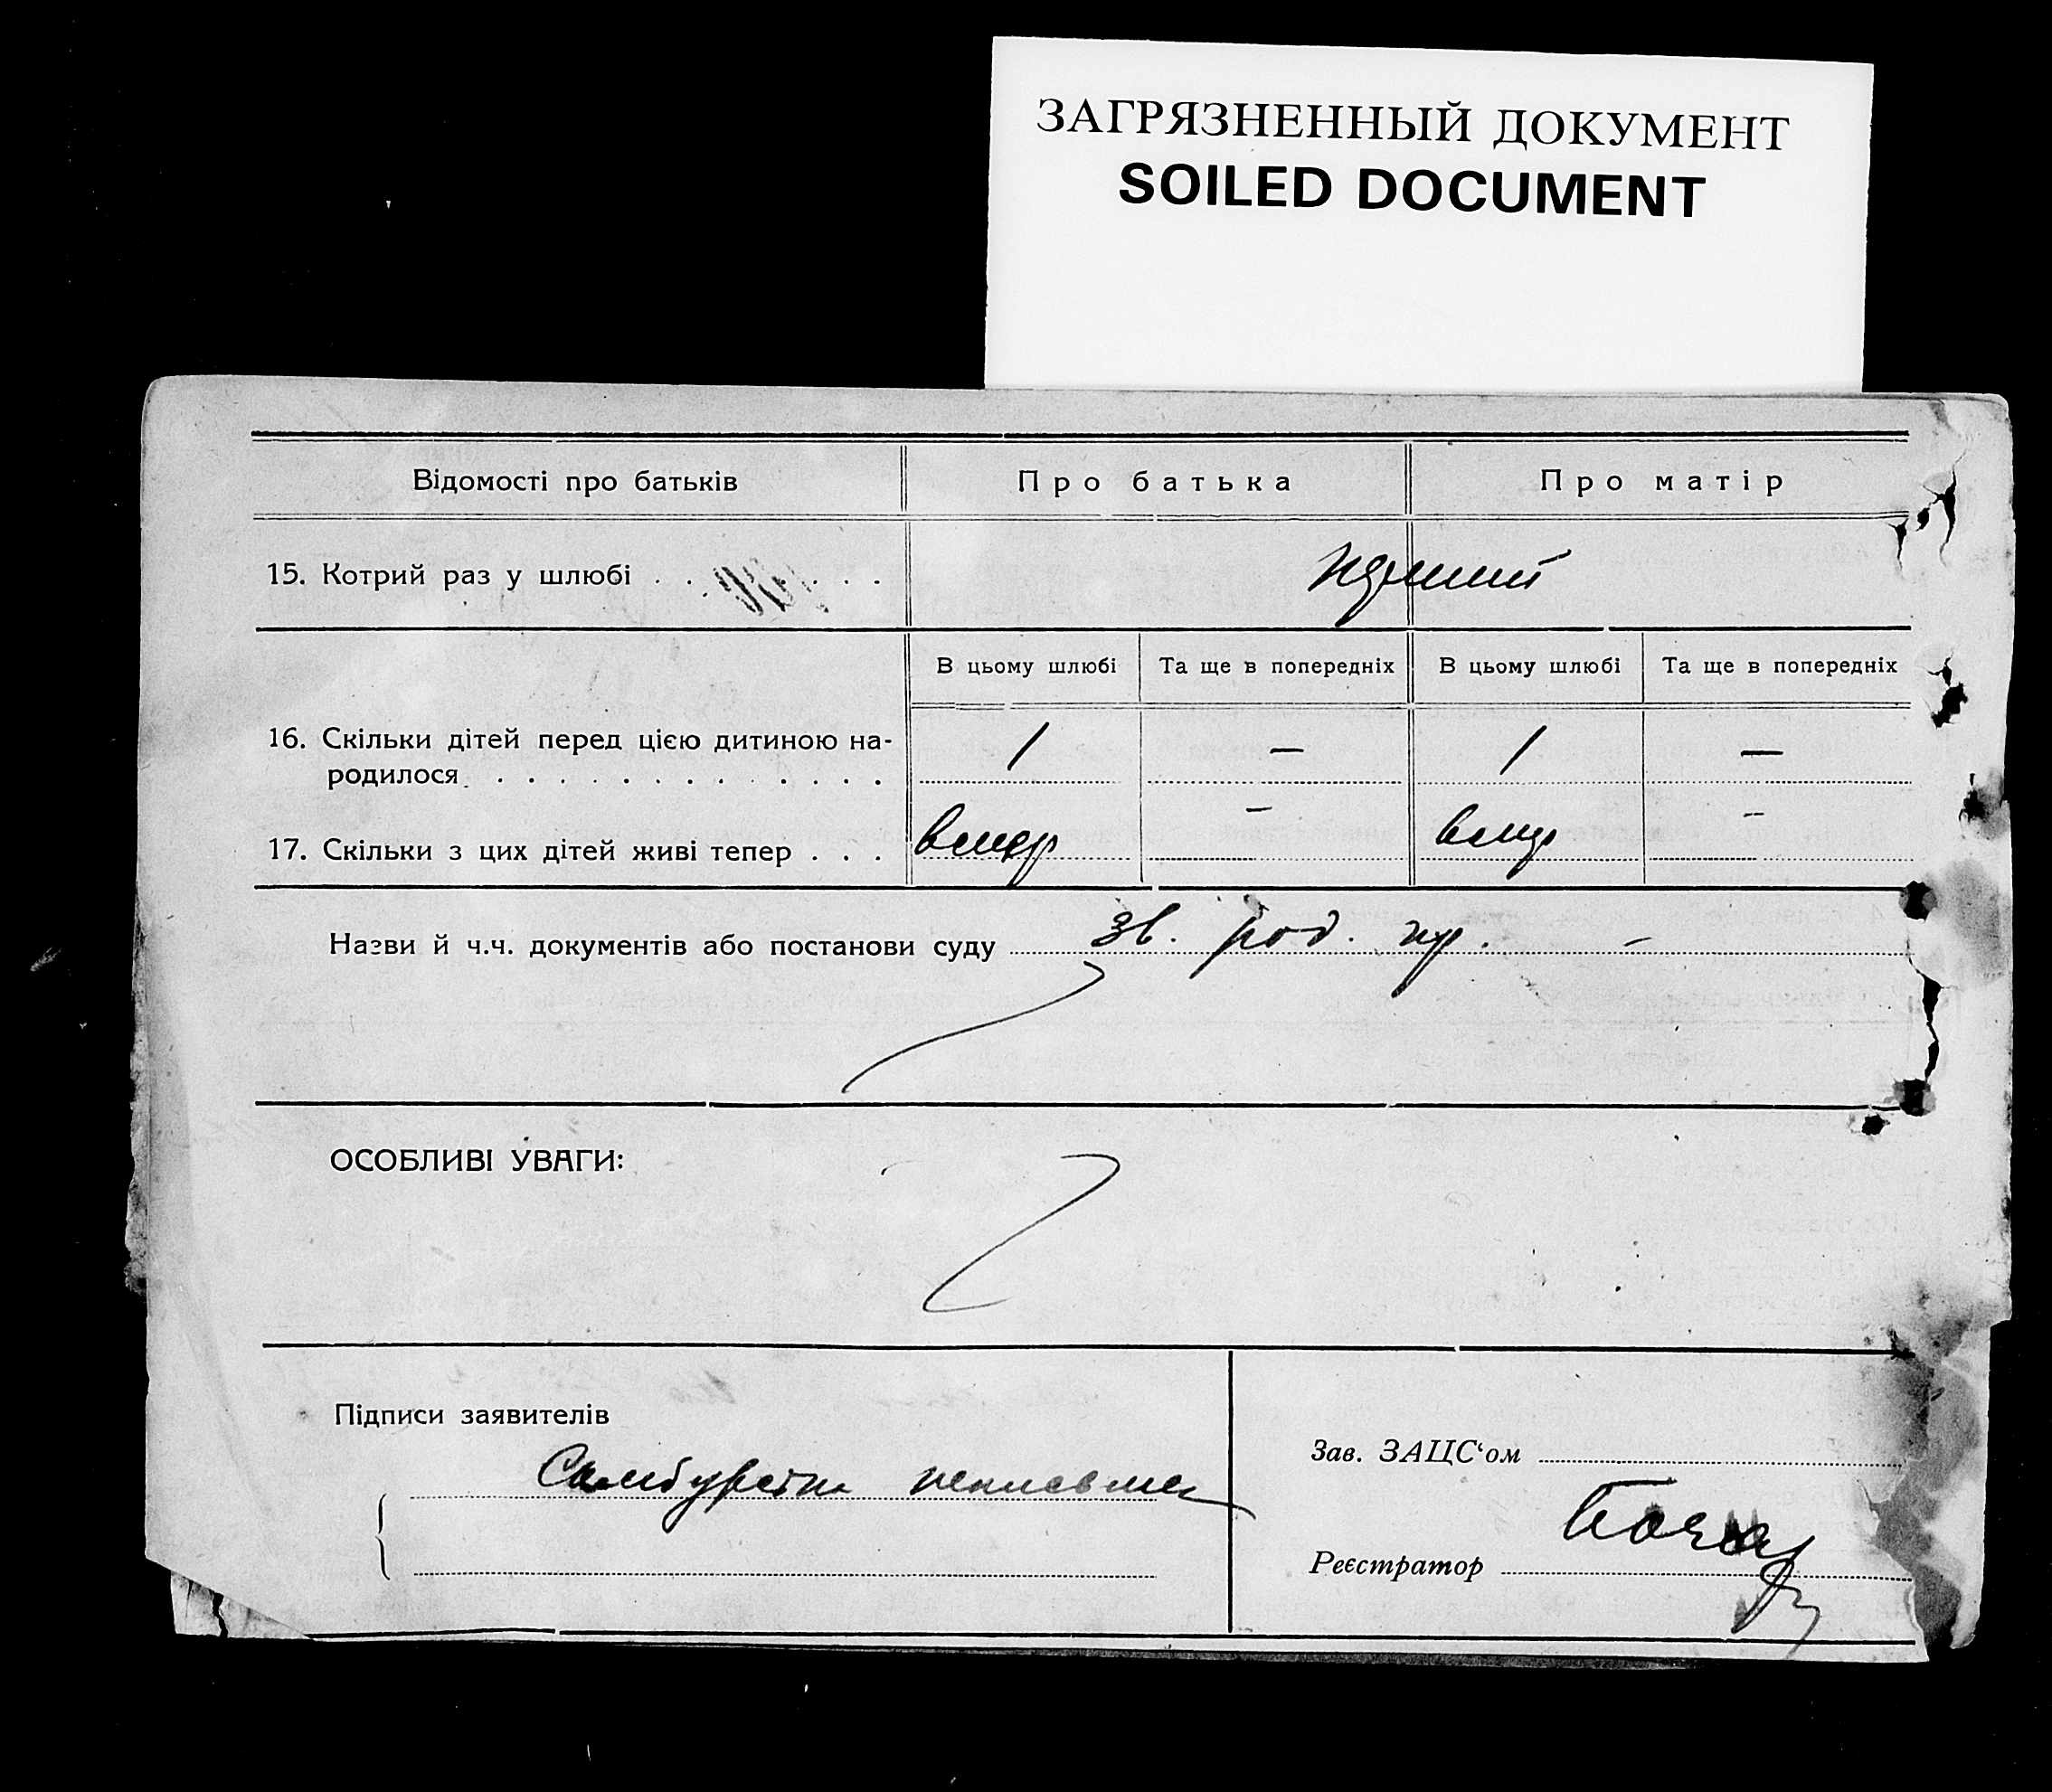 ЗАГРЯЗНЕННЫЙ ДОКУМЕНТ
SOILED DOCUMENT
Відомості про батьків Про батька Про матір
15. Котрий раз у шлюбі . . . . .
В цьому шлюбі Та ще в попередніх В цьому шлюбі Та ще в попередніх
16. Скільки дітей перед цією дитиною на-
родилося . . . . . . . . . . 1 — 1 —
17. Скільки з цих дітей живі тепер . . . вмер - вмер -
Назви й ч.ч. документів або постанови суду зв. род. пр. -
ОСОБЛИВІ УВАГИ:
Підписи заявителів
Зав. ЗАЦС'ом
неписьмен
Реєстратор